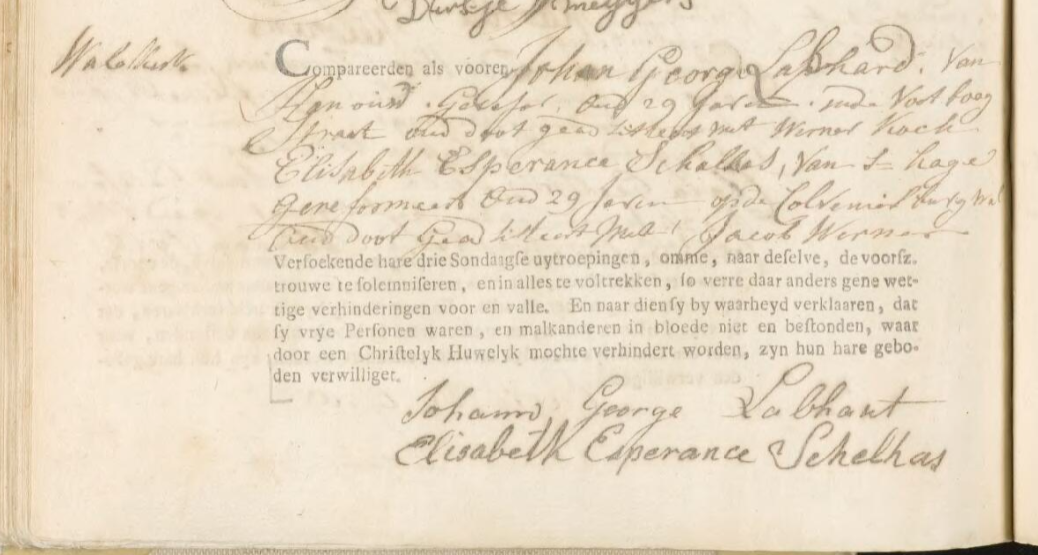 Dirkje Kneyjers
Walekerk
Compareerden als vooren Johan George Labhard. Van
Hanouw. Gerefor. Oud 29 Jaren. inde Vort boog
Straat oud doot geadsisteert met Werner Koch
Elisabeth Esperance Schelhas, Van S Hage
gereformeert Oud 29 Jaren op de Colveniersburgwal
Oud doot Geadsisteert Met Jacob Werner
Versoekende hare drie Sondaagse uytroepingen, omme, naar deselve, de voorsz.
trouwe te solemniseren, en in alles te voltrekken, so verre daar anders gene wet-
tige verhinderingen voor en valle. En naar dien sy by waarheyd verklaaren, dat
sy vrye Personen waren, en malkanderen in bloede niet en bestonden, waar
door een Christelyk Huwelyk mochte verhindert worden, zyn hun hare gebo-
den verwilliget.
Johann George Labhart
Elisabeth Esperance Schelhas